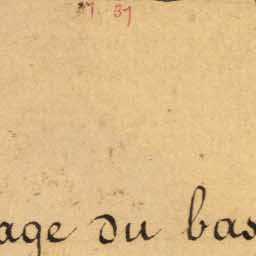 37
age du bas